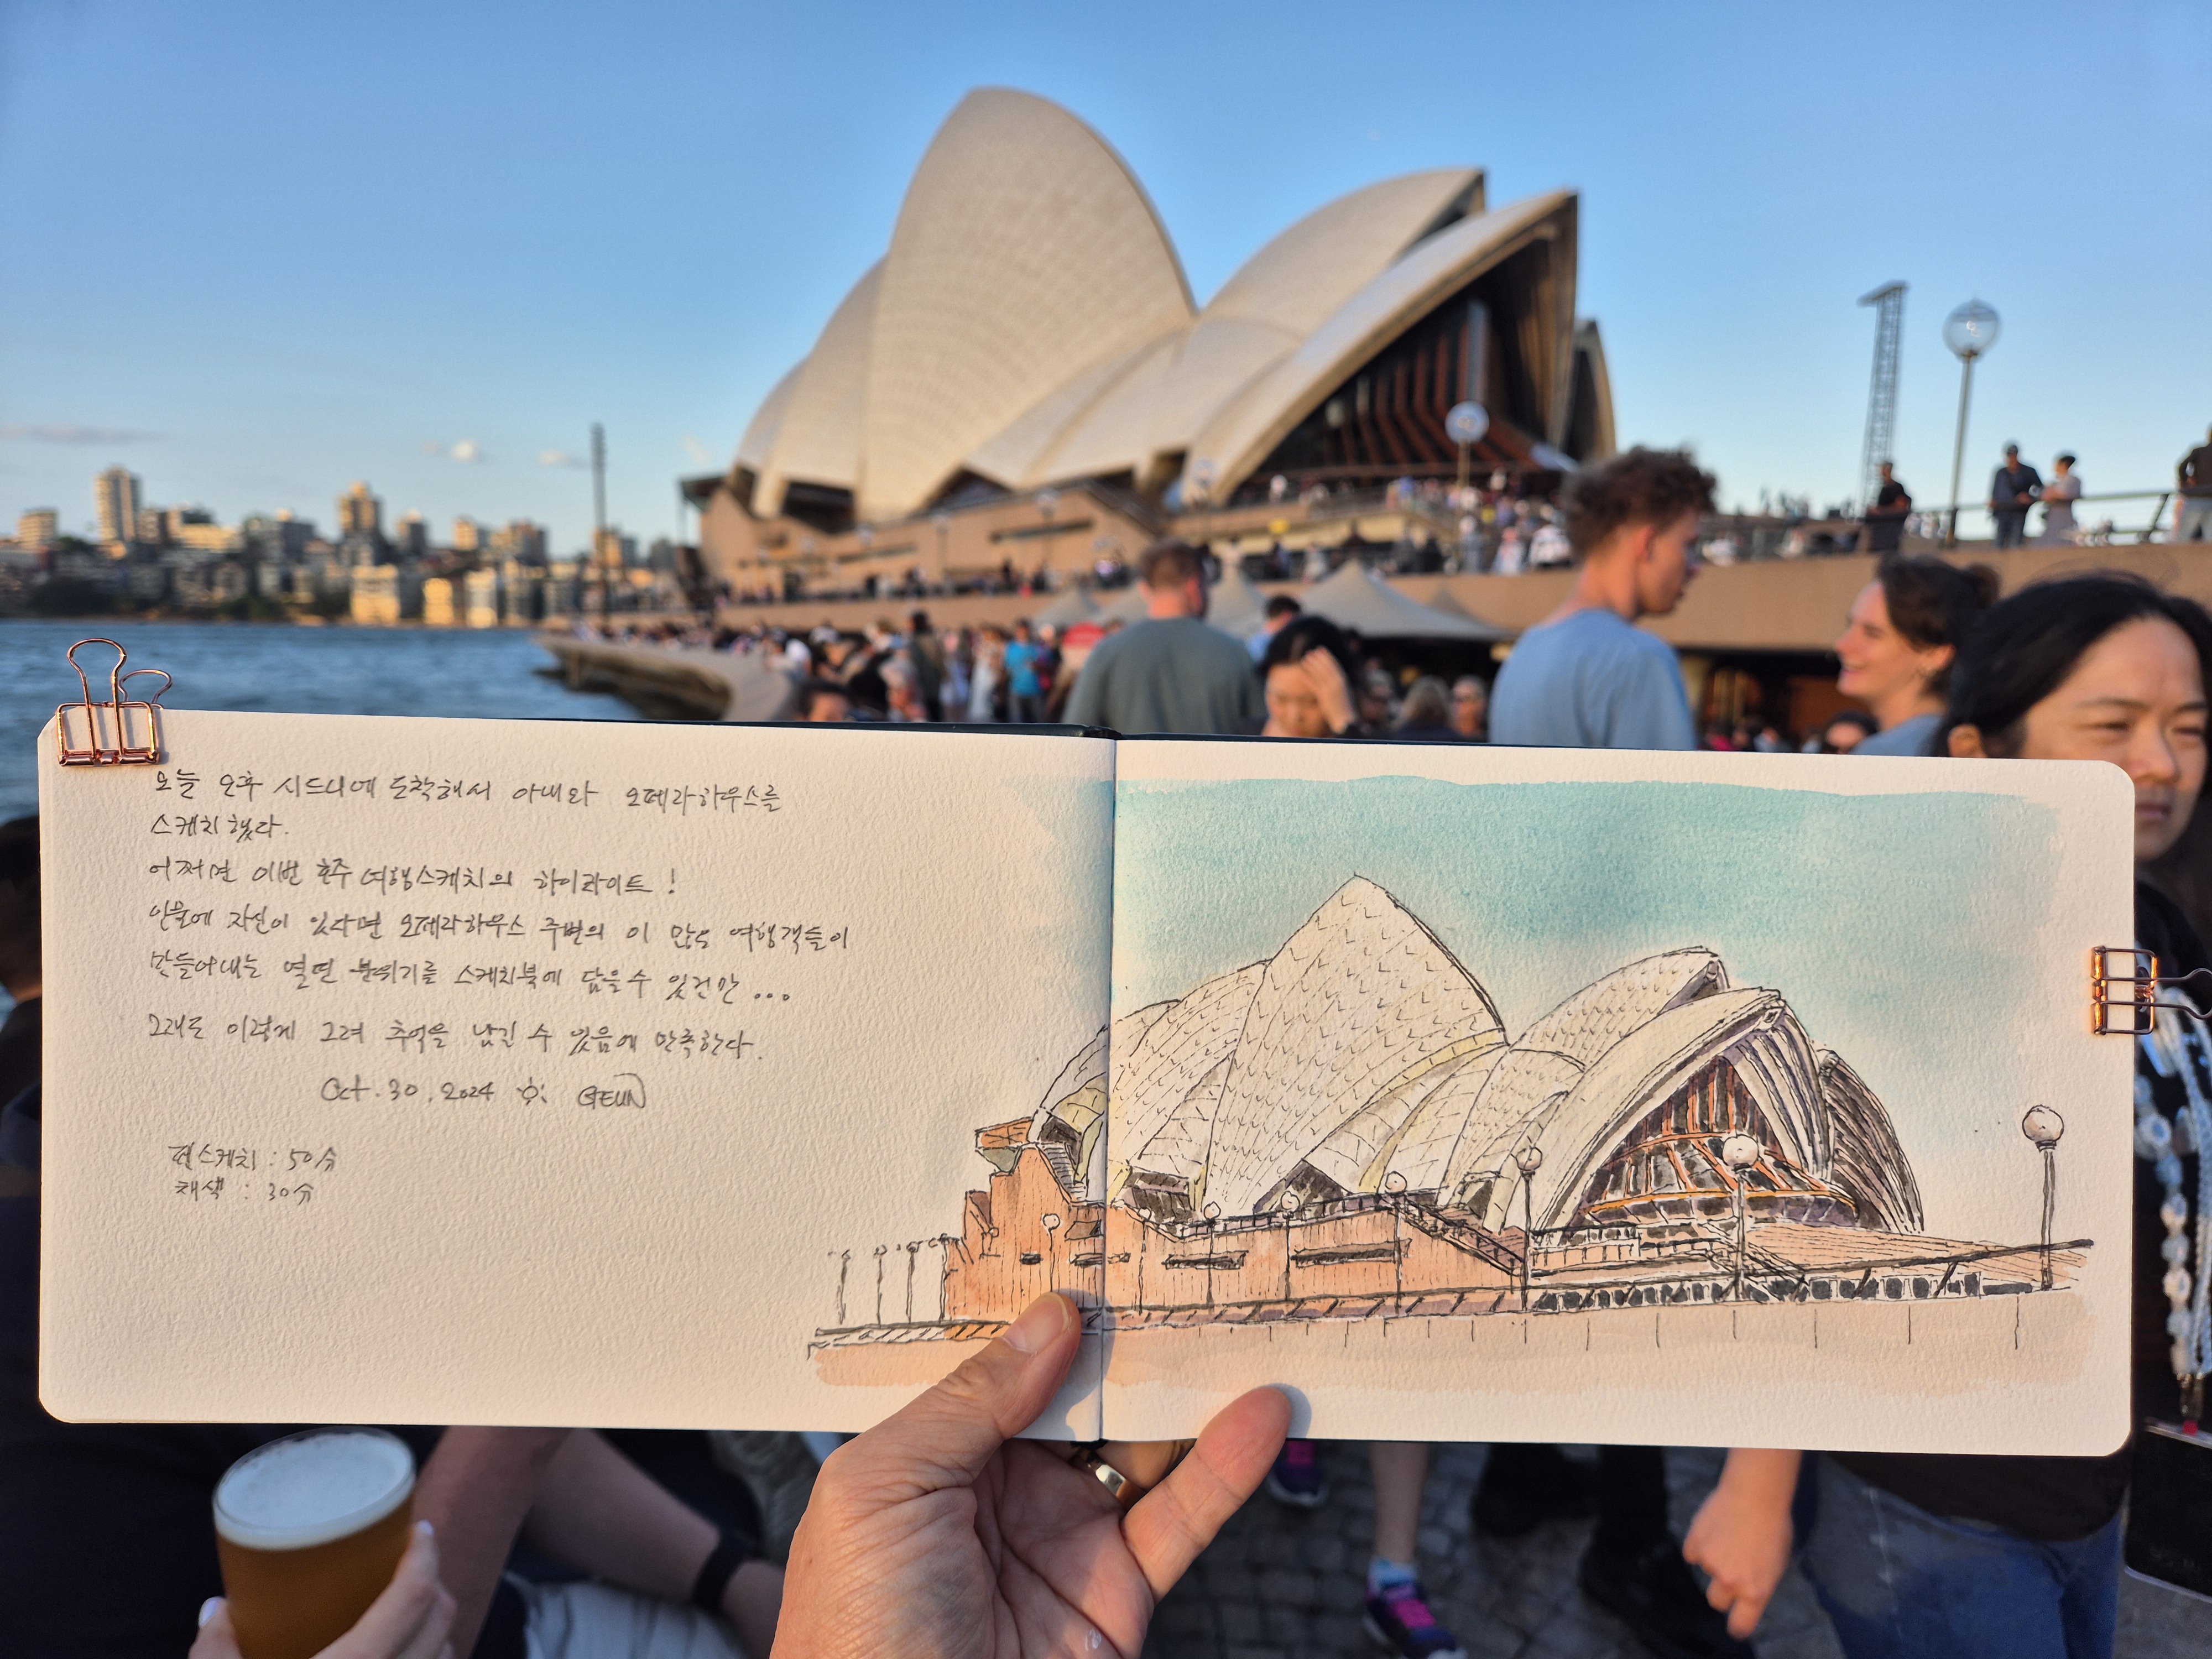 오늘 오후 시드니에 도착해서 아내와 오페라하우스를
스케치했다.
어쩌면 이번 호주 여행스케치의 하이라이트!
인물에 자신이 있다면 오페라하우스 주변의 이 많은 여행객들이
만들어내는 열띤 분위기를 스케치북에 담을 수 있건만...
그래도 이렇게 그려 추억을 남길 수 있음에 만족한다.
Oct. 30, 2024 GEUN
펜스케치 : 50分
채색 : 30分